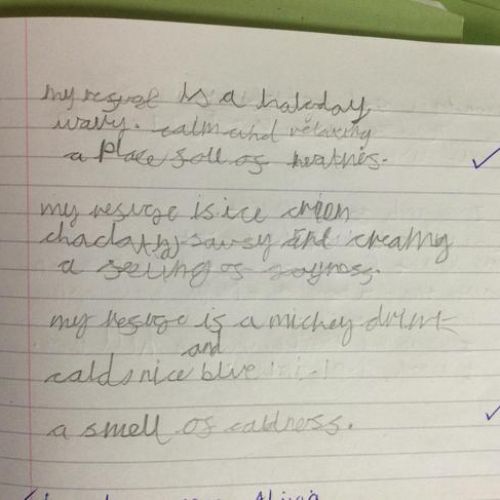 my resuge is a haloday
wavy. calm and relaxing
a place soll of heatnes.
my resuge is ice creem
choclatty sausy and creamy
a seeling of joyness.
my resuge is a mickey drink
and
calds nice blue
a smell of caldness.